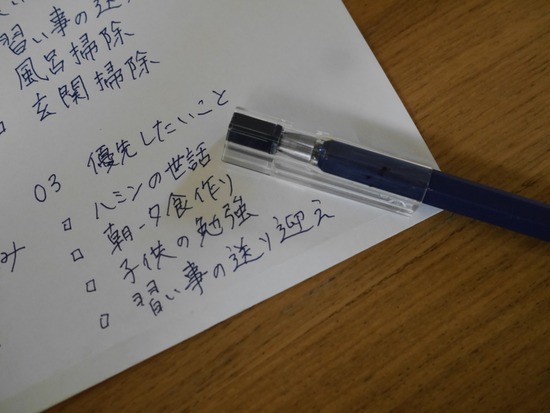 習い事の送
風呂掃除
玄関掃除
03 優先したいこと
ハミンの世話
朝-夕食作り
子供の勉強
習い事の送り迎え
み